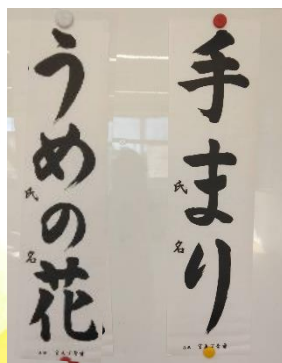 手まり
氏名
うめの花
氏名